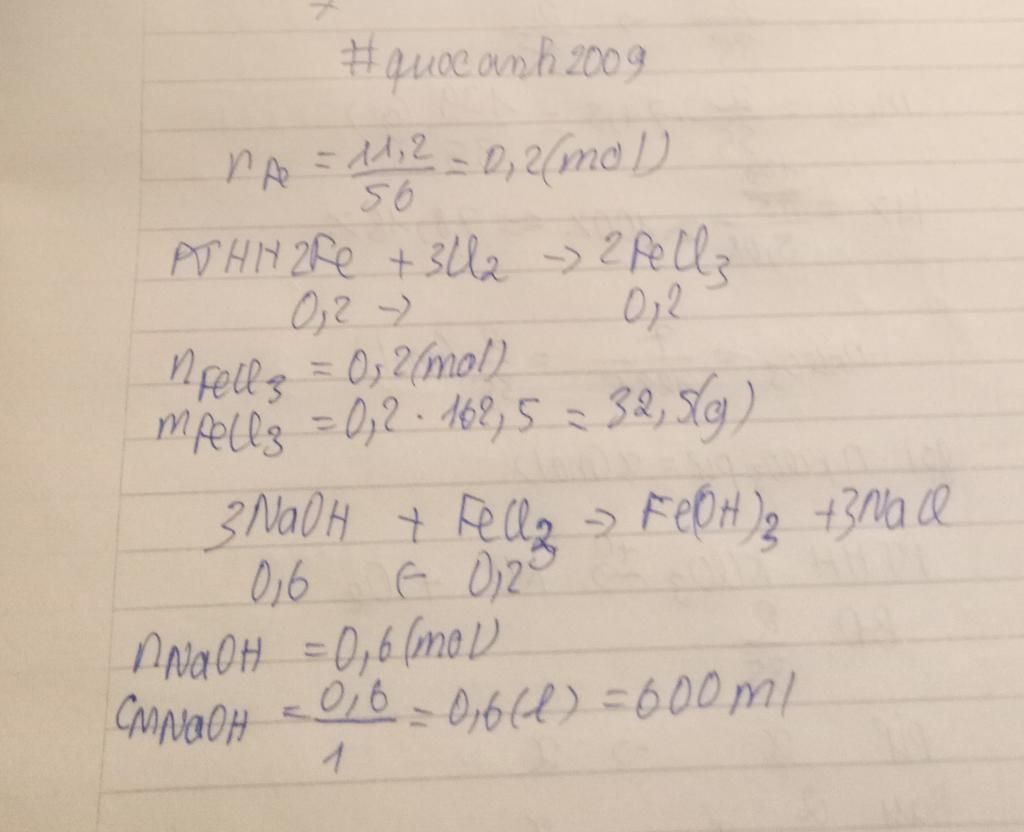 #quocanh2009
nFe = 11,2/56 = 0,2(mol)
PTHH 2Fe + 3Cl2 → 2FeCl3
0,2 → 0,2
nFeCl3 = 0,2(mol)
mFeCl3 = 0,2 . 162,5 = 32,5(g)
3NaOH + FeCl3 → Fe(OH)3 + 3NaCl
0,6 ← 0,2
nNaOH = 0,6(mol)
CMNaOH = 0,6/1 = 0,6(l) = 600ml